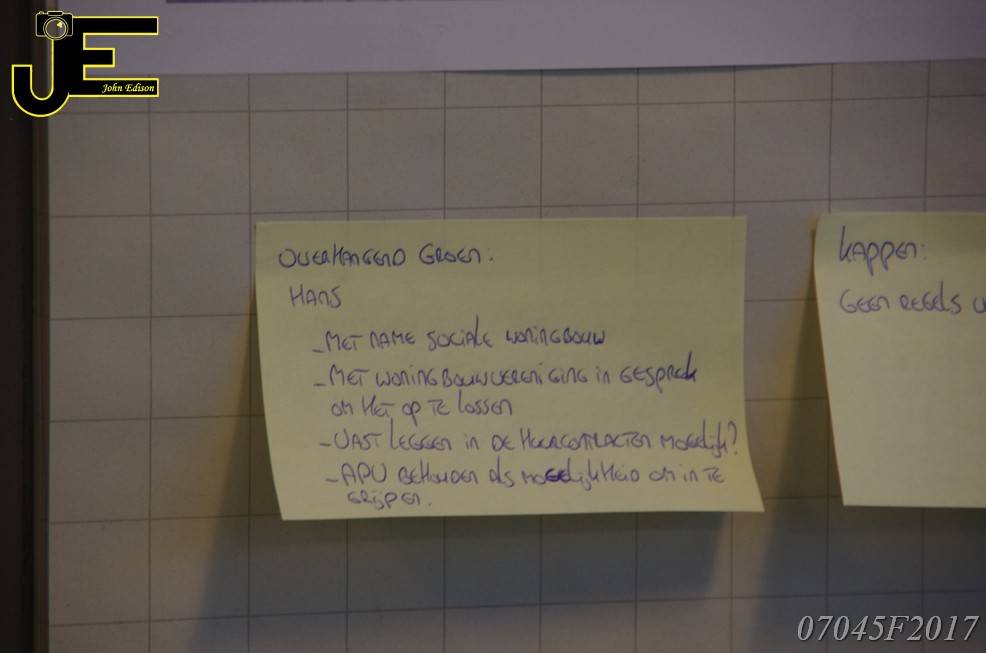 JE
John Edison
OVERHANGEND GROEN:
HANS
- MET NAME SOCIALE WONINGBOUW
- MET WONINGBOUWVERENIGING in GESPREK
OM HET OP TE LOSSEN
- VAST LEGGEN in DE HUURCONTRACTEN MOGELIJK?
- APV BEHOUDEN ALS MOGELIJKHEID OM in TE
GRIJPEN.
KAPPEN:
GEEN REGELS
07045F2017